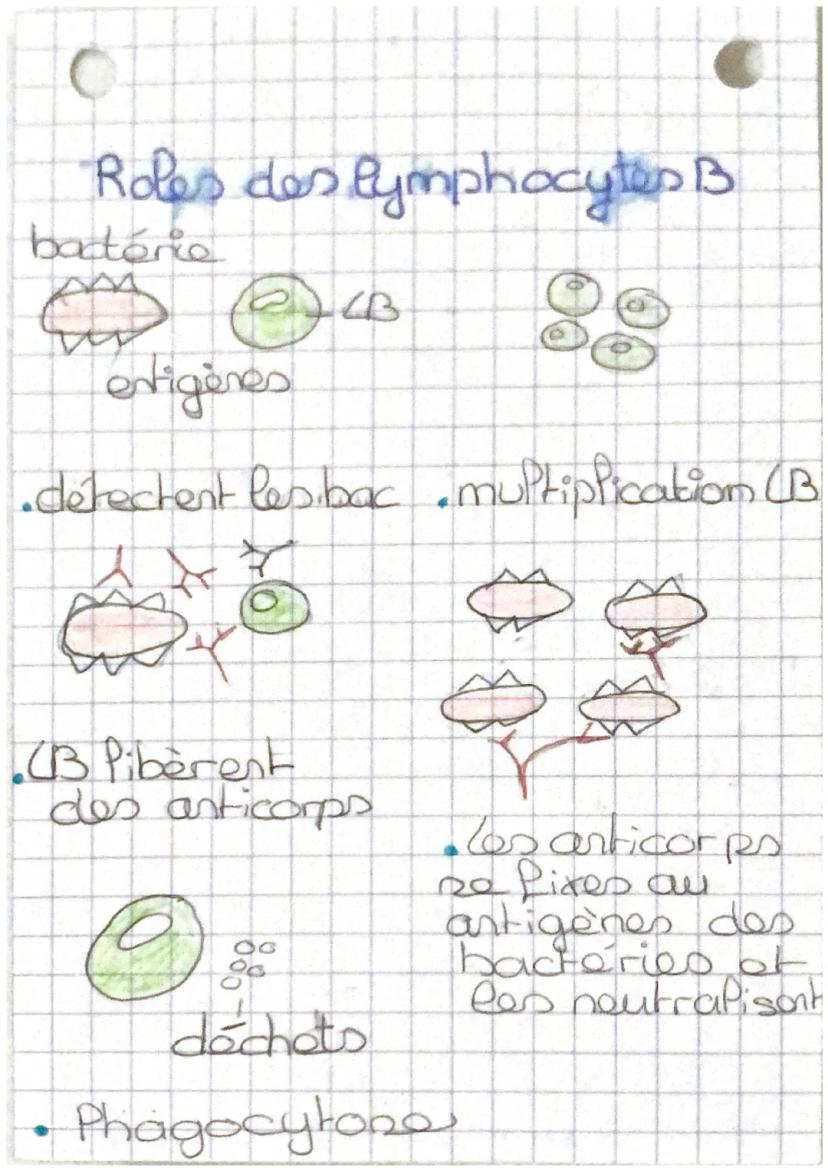 Roles des lymphocytes B
bactérie
LB
antigènes
. détectent les bac
. multiplication LB
. LB libèrent
des anticorps
. Les anticorps
se fixes au
antigènes des
bactéries et
les neutralisent
déchets
. Phagocytose